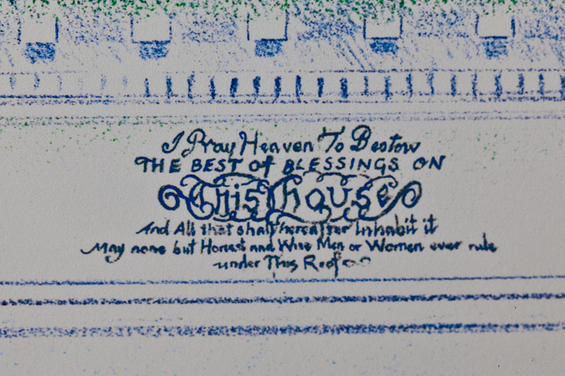 I Pray Heaven To Bestow
THE BEST of BLESSINGS ON
This house
And All that shall hereafter Inhabit it
May none but Honest and Wise Men or Women ever rule
under This Roof